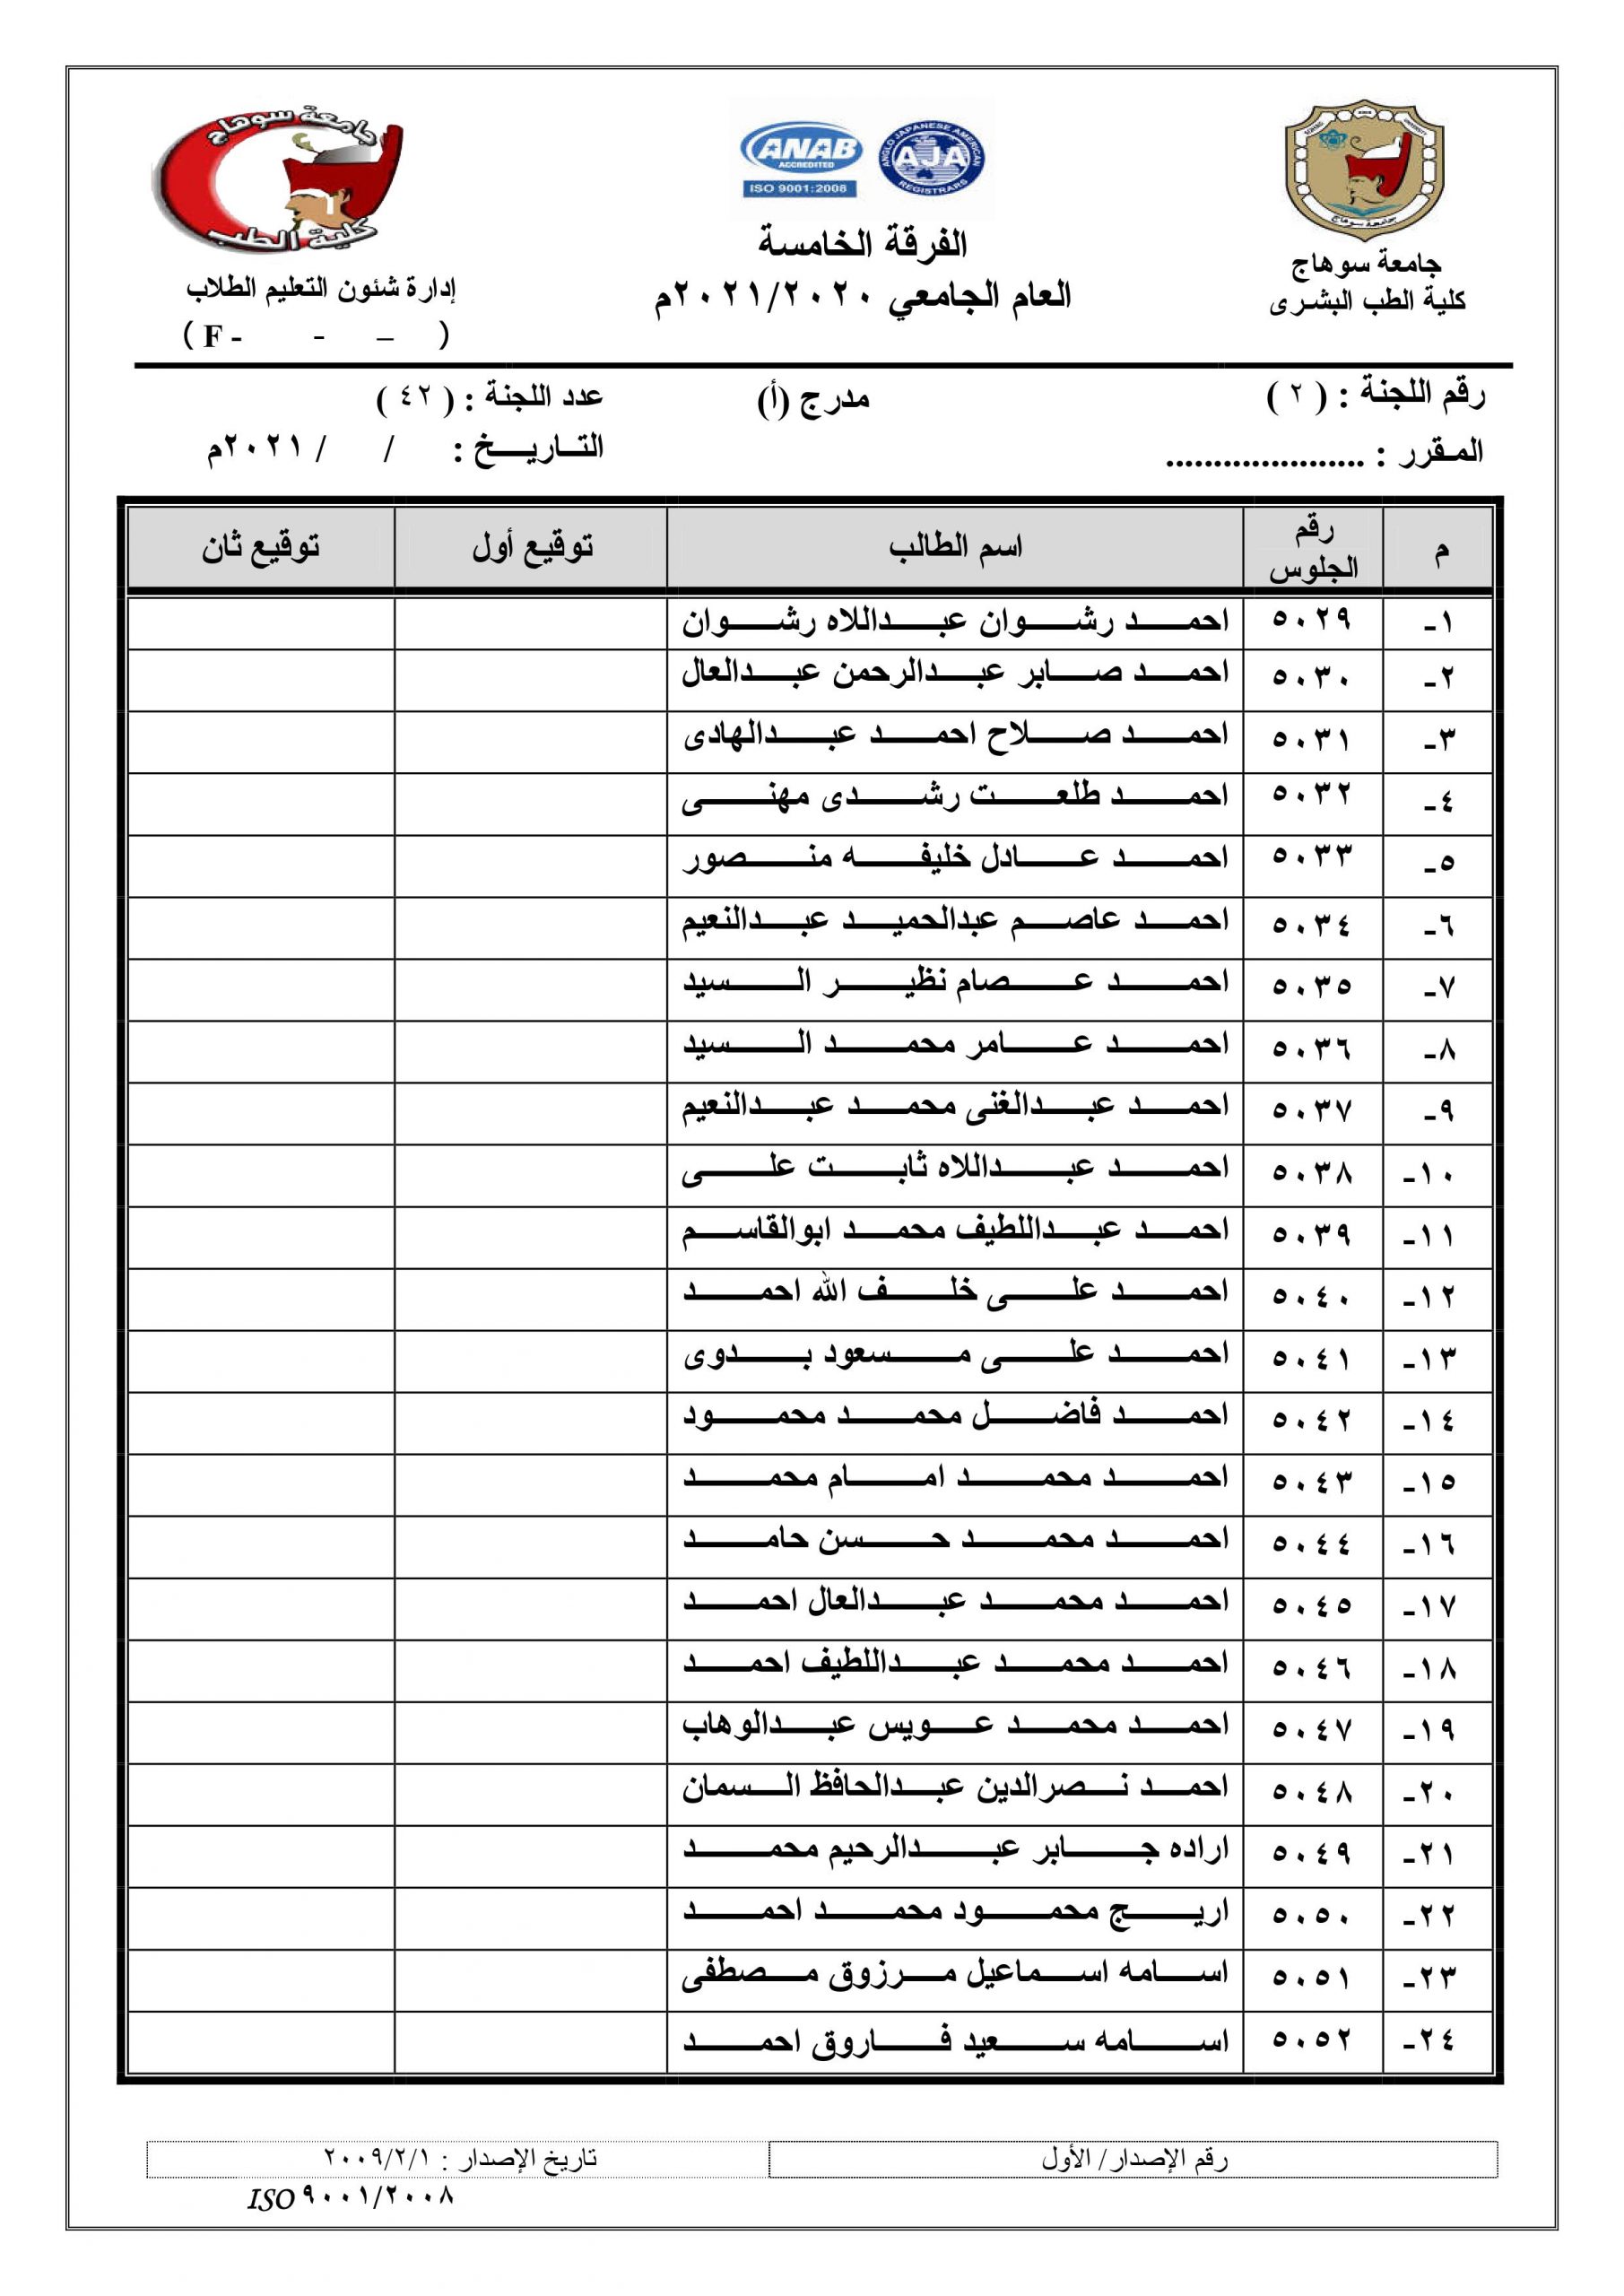 SOHAG UNIVERSITY
جامعة سوهاج
جامعة سوهاج
كلية الطب البشرى
ANAB
ACCREDITED
ISO 9001:2008
ANGLO JAPANESE AMERICAN
AJA
REGISTRARS
الفرقة الخامسة
العام الجامعي ٢٠٢١/٢٠٢٠م
جامعة سوهاج
كلية الطب
إدارة شئون التعليم الطلاب
( F -      -      –      )
رقم اللجنة : ( ٢ )
مدرج (أ)
عدد اللجنة : ( ٤٢ )
المقرر : .....................
التاريخ :      /      / ٢٠٢١م
م رقم الجلوس اسم الطالب توقيع أول توقيع ثان
١- ٥٠٢٩ احمد رشوان عبداللاه رشوان
٢- ٥٠٣٠ احمد صابر عبدالرحمن عبدالعال
٣- ٥٠٣١ احمد صلاح احمد عبدالهادى
٤- ٥٠٣٢ احمد طلعت رشدى مهنى
٥- ٥٠٣٣ احمد عادل خليفه منصور
٦- ٥٠٣٤ احمد عاصم عبدالحميد عبدالنعيم
٧- ٥٠٣٥ احمد عصام نظير السيد
٨- ٥٠٣٦ احمد عامر محمد السيد
٩- ٥٠٣٧ احمد عبدالغنى محمد عبدالنعيم
١٠- ٥٠٣٨ احمد عبداللاه ثابت على
١١- ٥٠٣٩ احمد عبداللطيف محمد ابوالقاسم
١٢- ٥٠٤٠ احمد على خلف الله احمد
١٣- ٥٠٤١ احمد على مسعود بدوى
١٤- ٥٠٤٢ احمد فاضل محمد محمود
١٥- ٥٠٤٣ احمد محمد امام محمد
١٦- ٥٠٤٤ احمد محمد حسن حامد
١٧- ٥٠٤٥ احمد محمد عبدالعال احمد
١٨- ٥٠٤٦ احمد محمد عبداللطيف احمد
١٩- ٥٠٤٧ احمد محمد عويس عبدالوهاب
٢٠- ٥٠٤٨ احمد نصرالدين عبدالحافظ السمان
٢١- ٥٠٤٩ اراده جابر عبدالرحيم محمد
٢٢- ٥٠٥٠ اريج محمود محمد احمد
٢٣- ٥٠٥١ اسامه اسماعيل مرزوق مصطفى
٢٤- ٥٠٥٢ اسامه سعيد فاروق احمد
رقم الإصدار/ الأول
تاريخ الإصدار : ٢٠٠٩/٢/١
ISO ٩٠٠١/٢٠٠٨